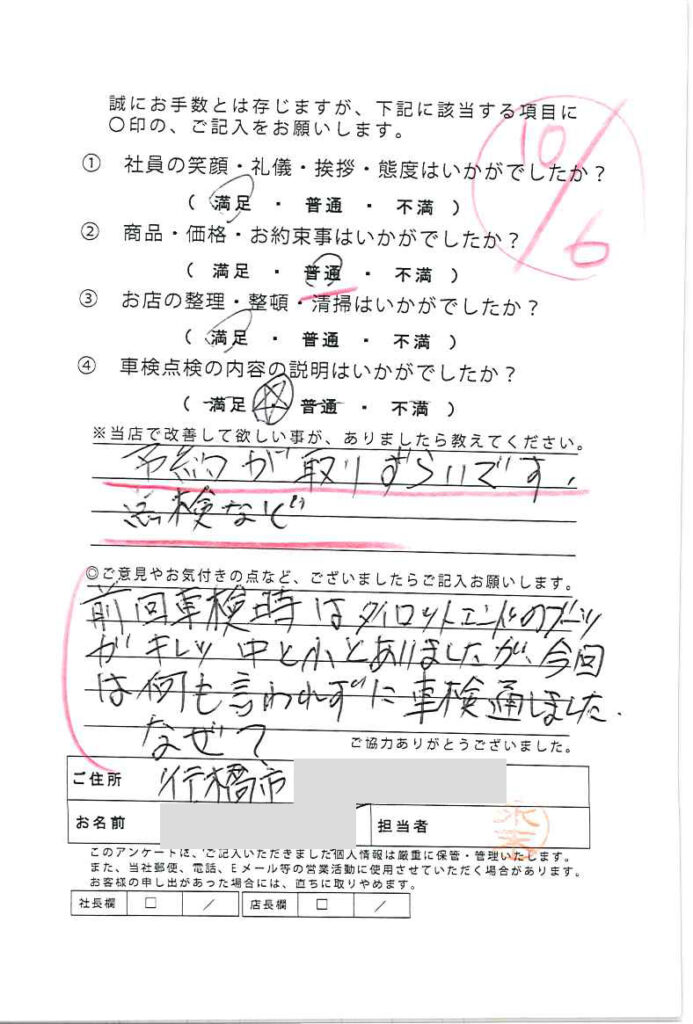 誠にお手数とは存じますが、下記に該当する項目に
〇印の、ご記入をお願いします。
10/6
① 社員の笑顔・礼儀・挨拶・態度はいかがでしたか？
（ 満足 ・ 普通 ・ 不満 ）
② 商品・価格・お約束事はいかがでしたか？
（ 満足 ・ 普通 ・ 不満 ）
③ お店の整理・整頓・清掃はいかがでしたか？
（ 満足 ・ 普通 ・ 不満 ）
④ 車検点検の内容の説明はいかがでしたか？
（ 満足 ・ 普通 ・ 不満 ）
※当店で改善して欲しい事が、ありましたら教えてください。
予約が取りずらいです、
点検など
◎ご意見やお気付きの点など、ございましたらご記入お願いします。
前回車検時はタイロットエンドのブーツ
がキレツ中と小とありましたが、今回
は何も言われずに車検通しました.
なぜ？
ご協力ありがとうございました。
ご住所 行橋市
お名前 担当者
このアンケートは、ご記入いただきました個人情報は厳重に保管・管理いたします。
また、当社郵便、電話、Eメール等の営業活動に使用させていただく場合があります。
お客様の申し出があった場合には、直ちに取りやめます。
社長欄 □ ／ 店長欄 □ ／